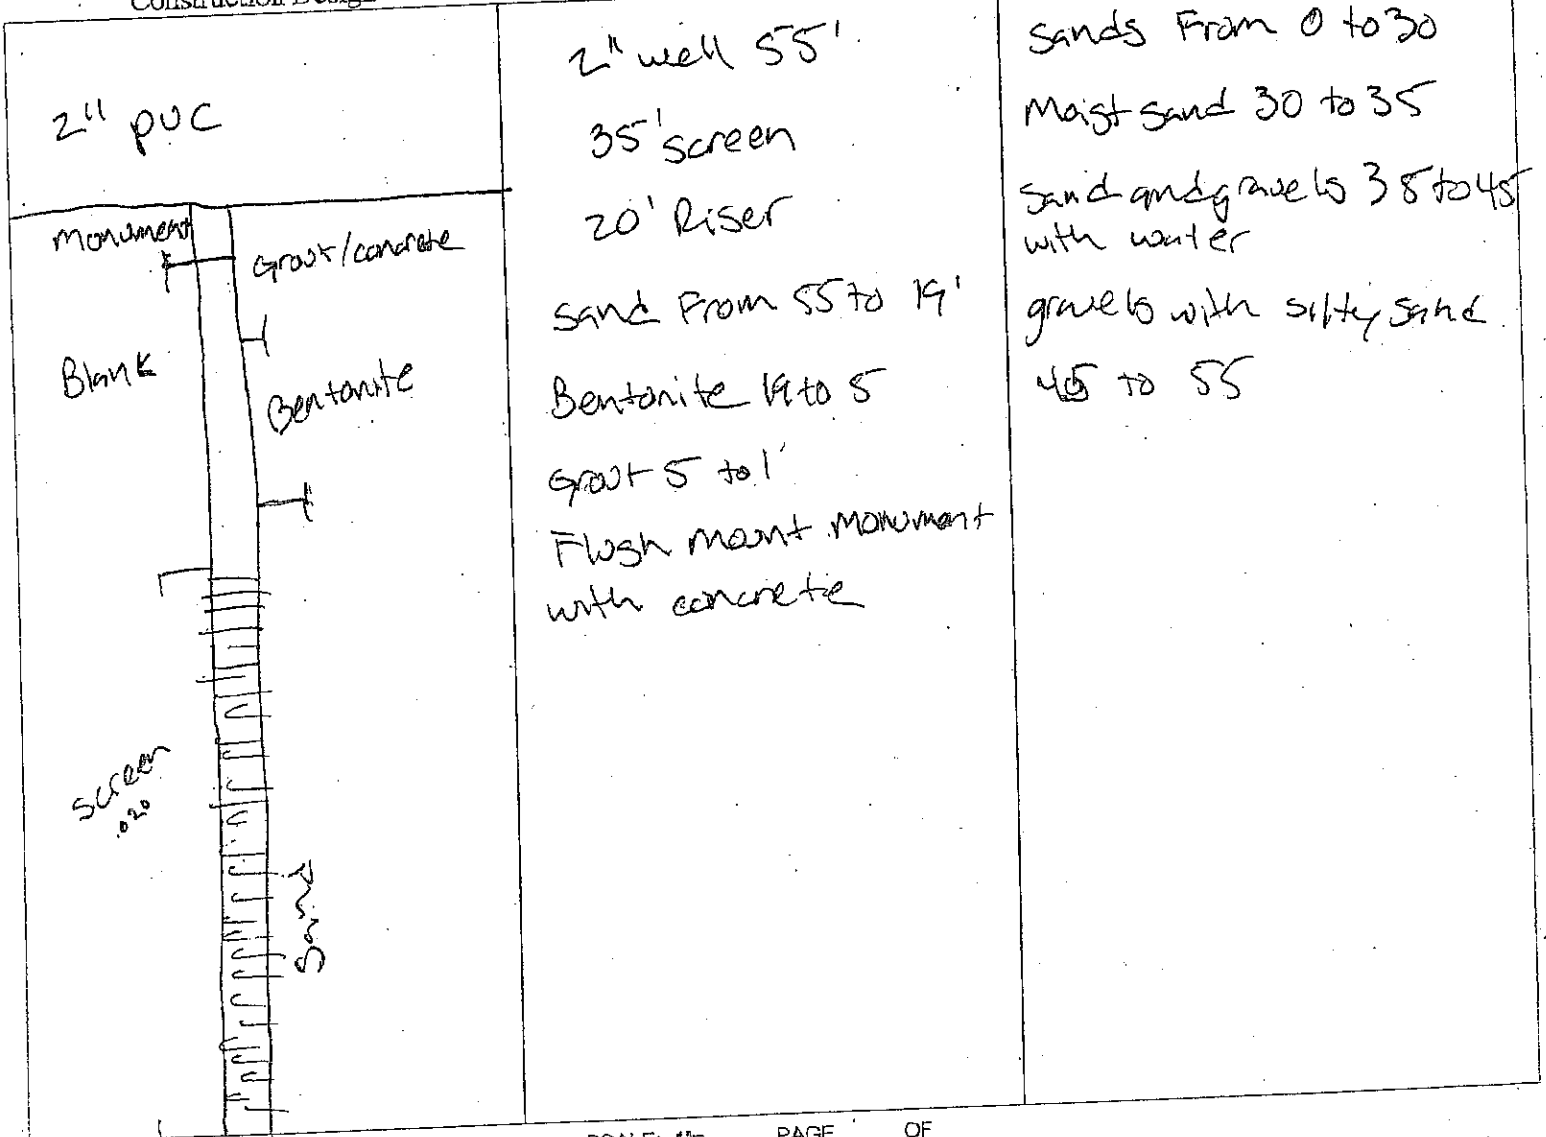 Construction Design
2" PVC
Monument
Grout/concrete
Blank
Bentonite
Screen
.020
Sand
2" well 55'
35' screen
20' Riser
Sand From 55 to 19'
Bentonite 19 to 5
Grout 5 to 1'
Flush mount monument
with concrete
Sands From 0 to 30
Moist sand 30 to 35
Sand and gravels 35 to 45
with water
gravels with silty sand
45 to 55
PAGE OF